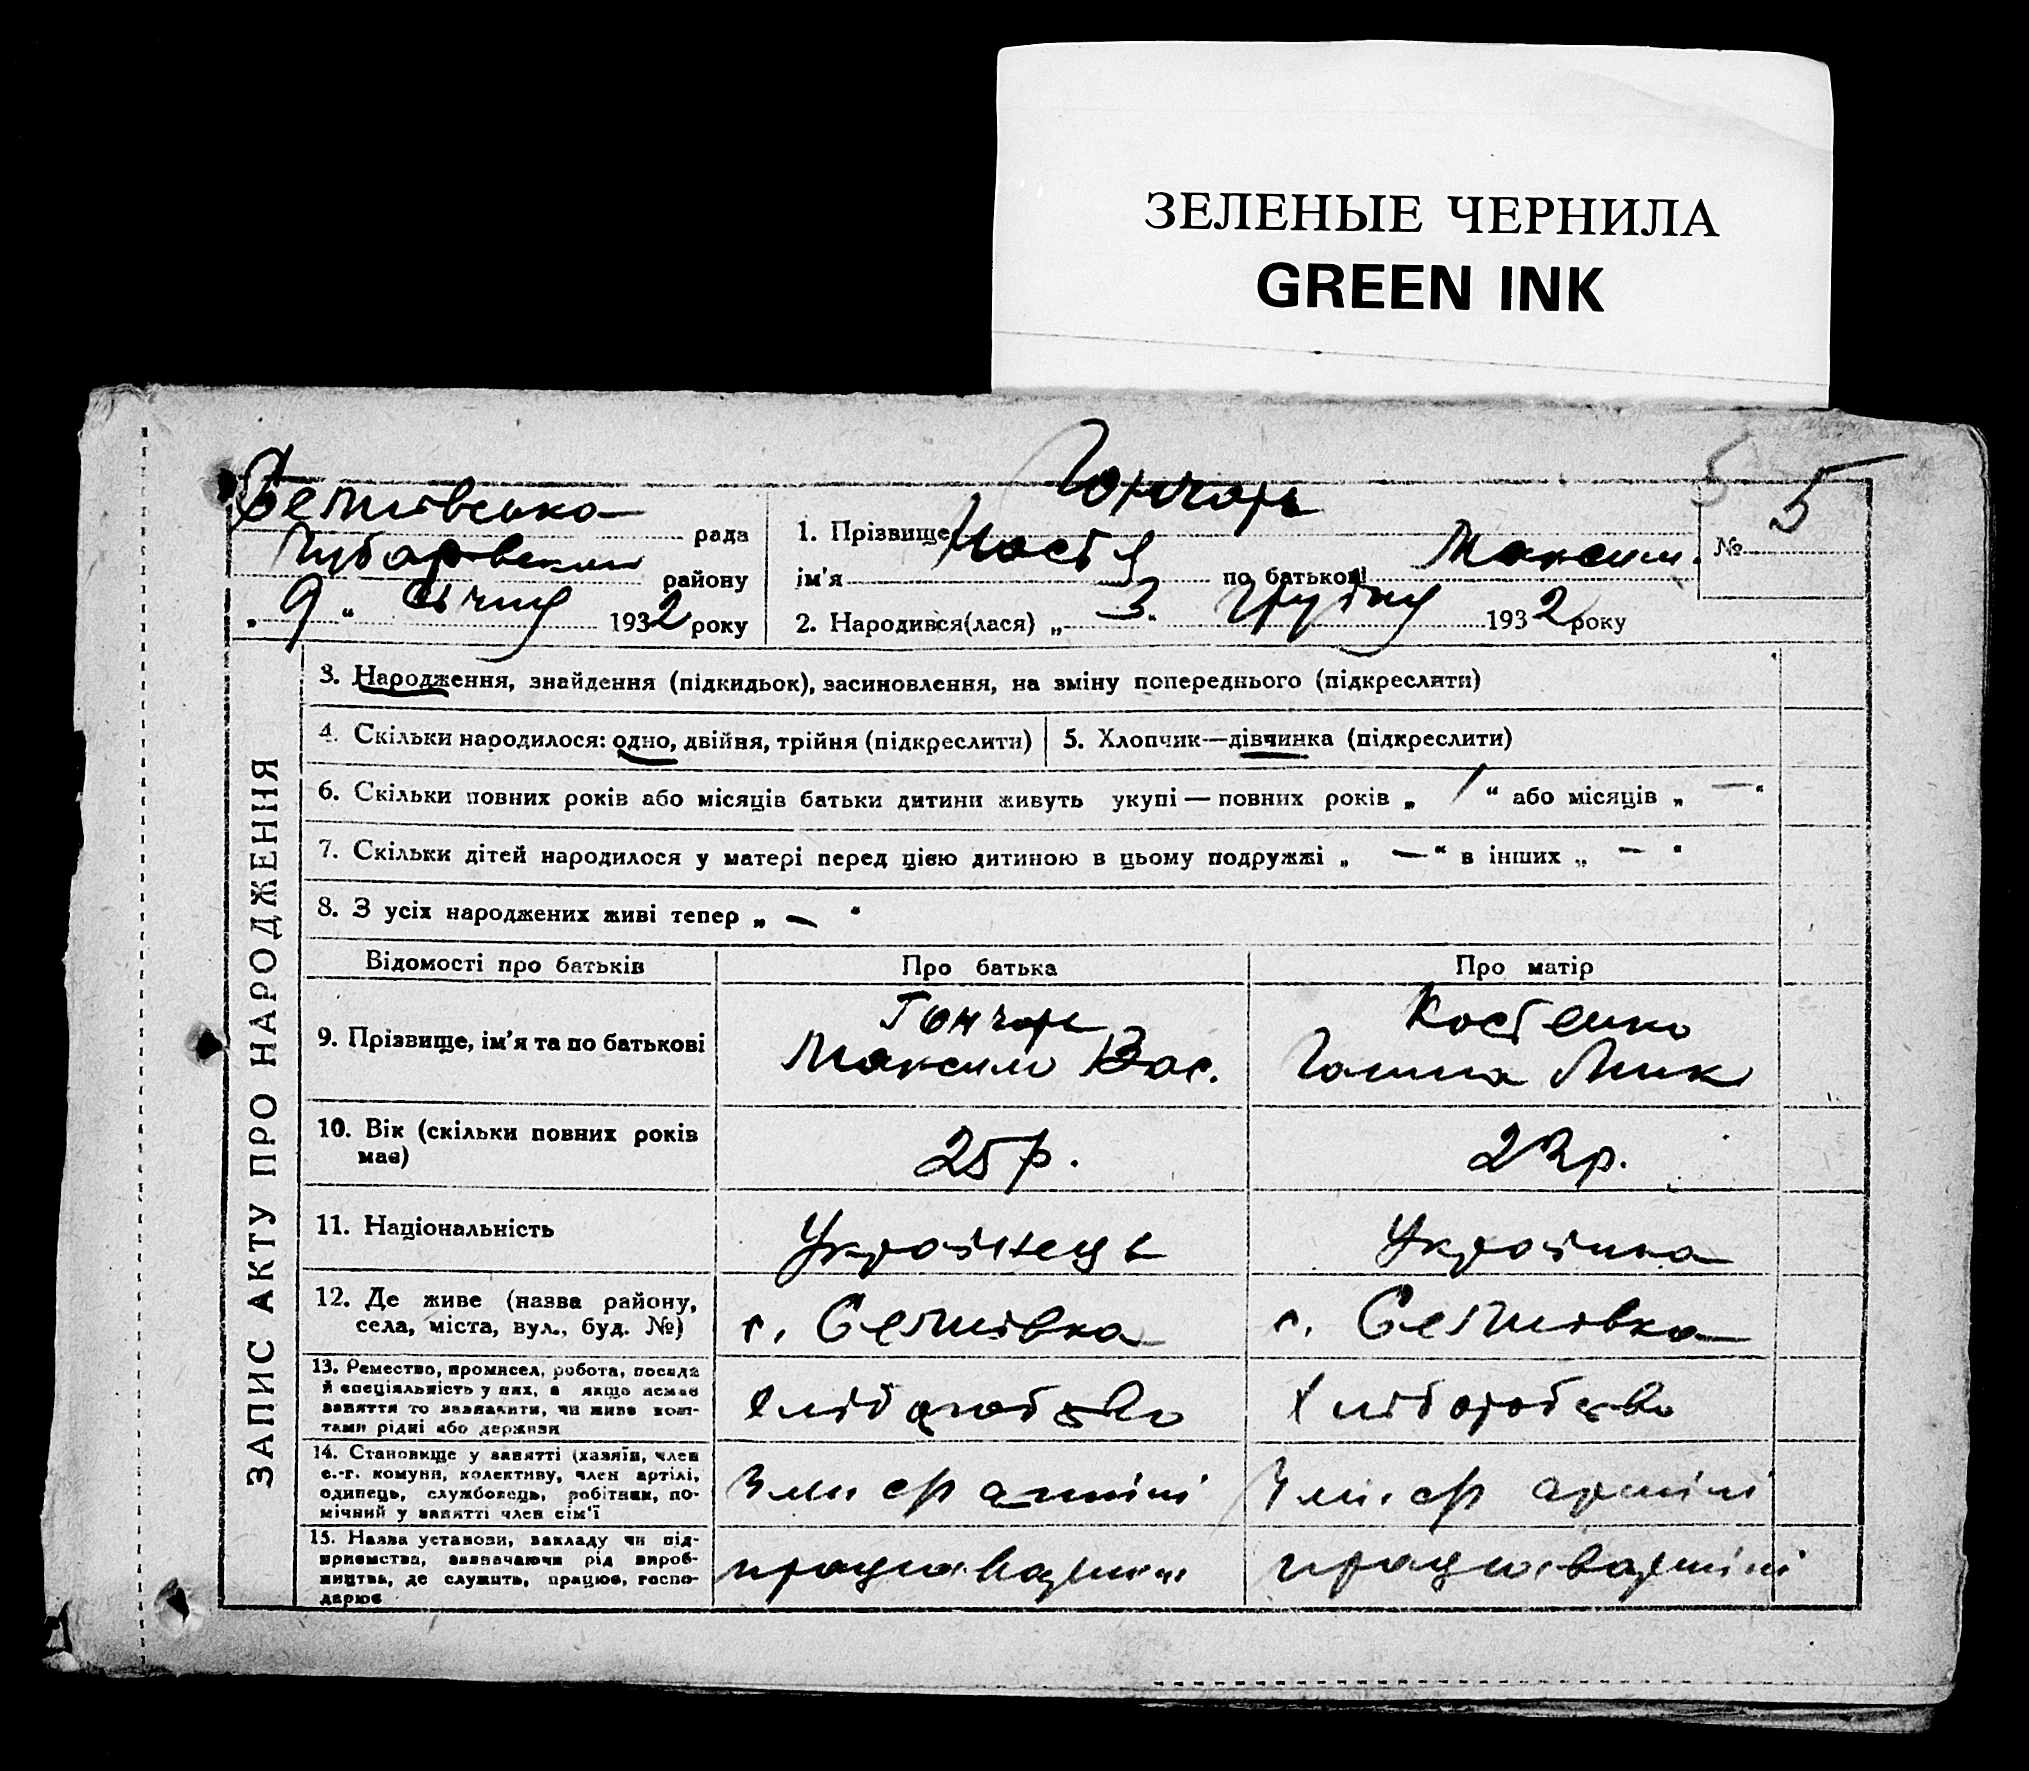 ЗЕЛЕНЫЕ ЧЕРНИЛА
GREEN INK
5
рада
району
„ 9 “ січня 1932 року
Гончарь
1. Прізвище
ім'я Настя по батькові Максим.
2. Народився(лася) „ 3 “ Грудня 1932 року
№ 5
ЗАПИС АКТУ ПРО НАРОДЖЕННЯ
3. Народження, знайдення (підкидьок), засиновлення, на зміну попереднього (підкреслити)
4. Скільки народилося: одно, двійня, трійня (підкреслити)
5. Хлопчик—дівчинка (підкреслити)
6. Скільки повних років або місяців батьки дитини живуть укупі — повних років „ 1 “ або місяців „ — “
7. Скільки дітей народилося у матері перед цією дитиною в цьому подружжі „ — “ в інших „ — “
8. З усіх народжених живі тепер „ — “
Відомості про батьків
Про батька
Про матір
9. Прізвище, ім'я та по батькові
Гончарь
Максим Вас.
Костенко
Ганна Мик
10. Вік (скільки повних років
має)
25 р.
22 р.
11. Національність
Українець
Українка
12. Де живе (назва району,
села, міста, вул., буд. №)
с.
с.
13. Ремество, промисел, робота, посада
й спеціяльність у них, а якщо немає
заняття то зазначити, чи живе кош-
тами рідні або держави
Хліборобство
Хліборобство
14. Становище у занятті (хазяїн, член
с.-г. комуни, колективу, член артілі,
одинець, службовець, робітник, по-
мічний у занятті член сім'ї
артілі
артілі
15. Назва установи, закладу чи під-
приємства, зазначаючи рід вироб-
ництва, де служить, працює, госпо-
дарює
працює в артілі
працює в артілі